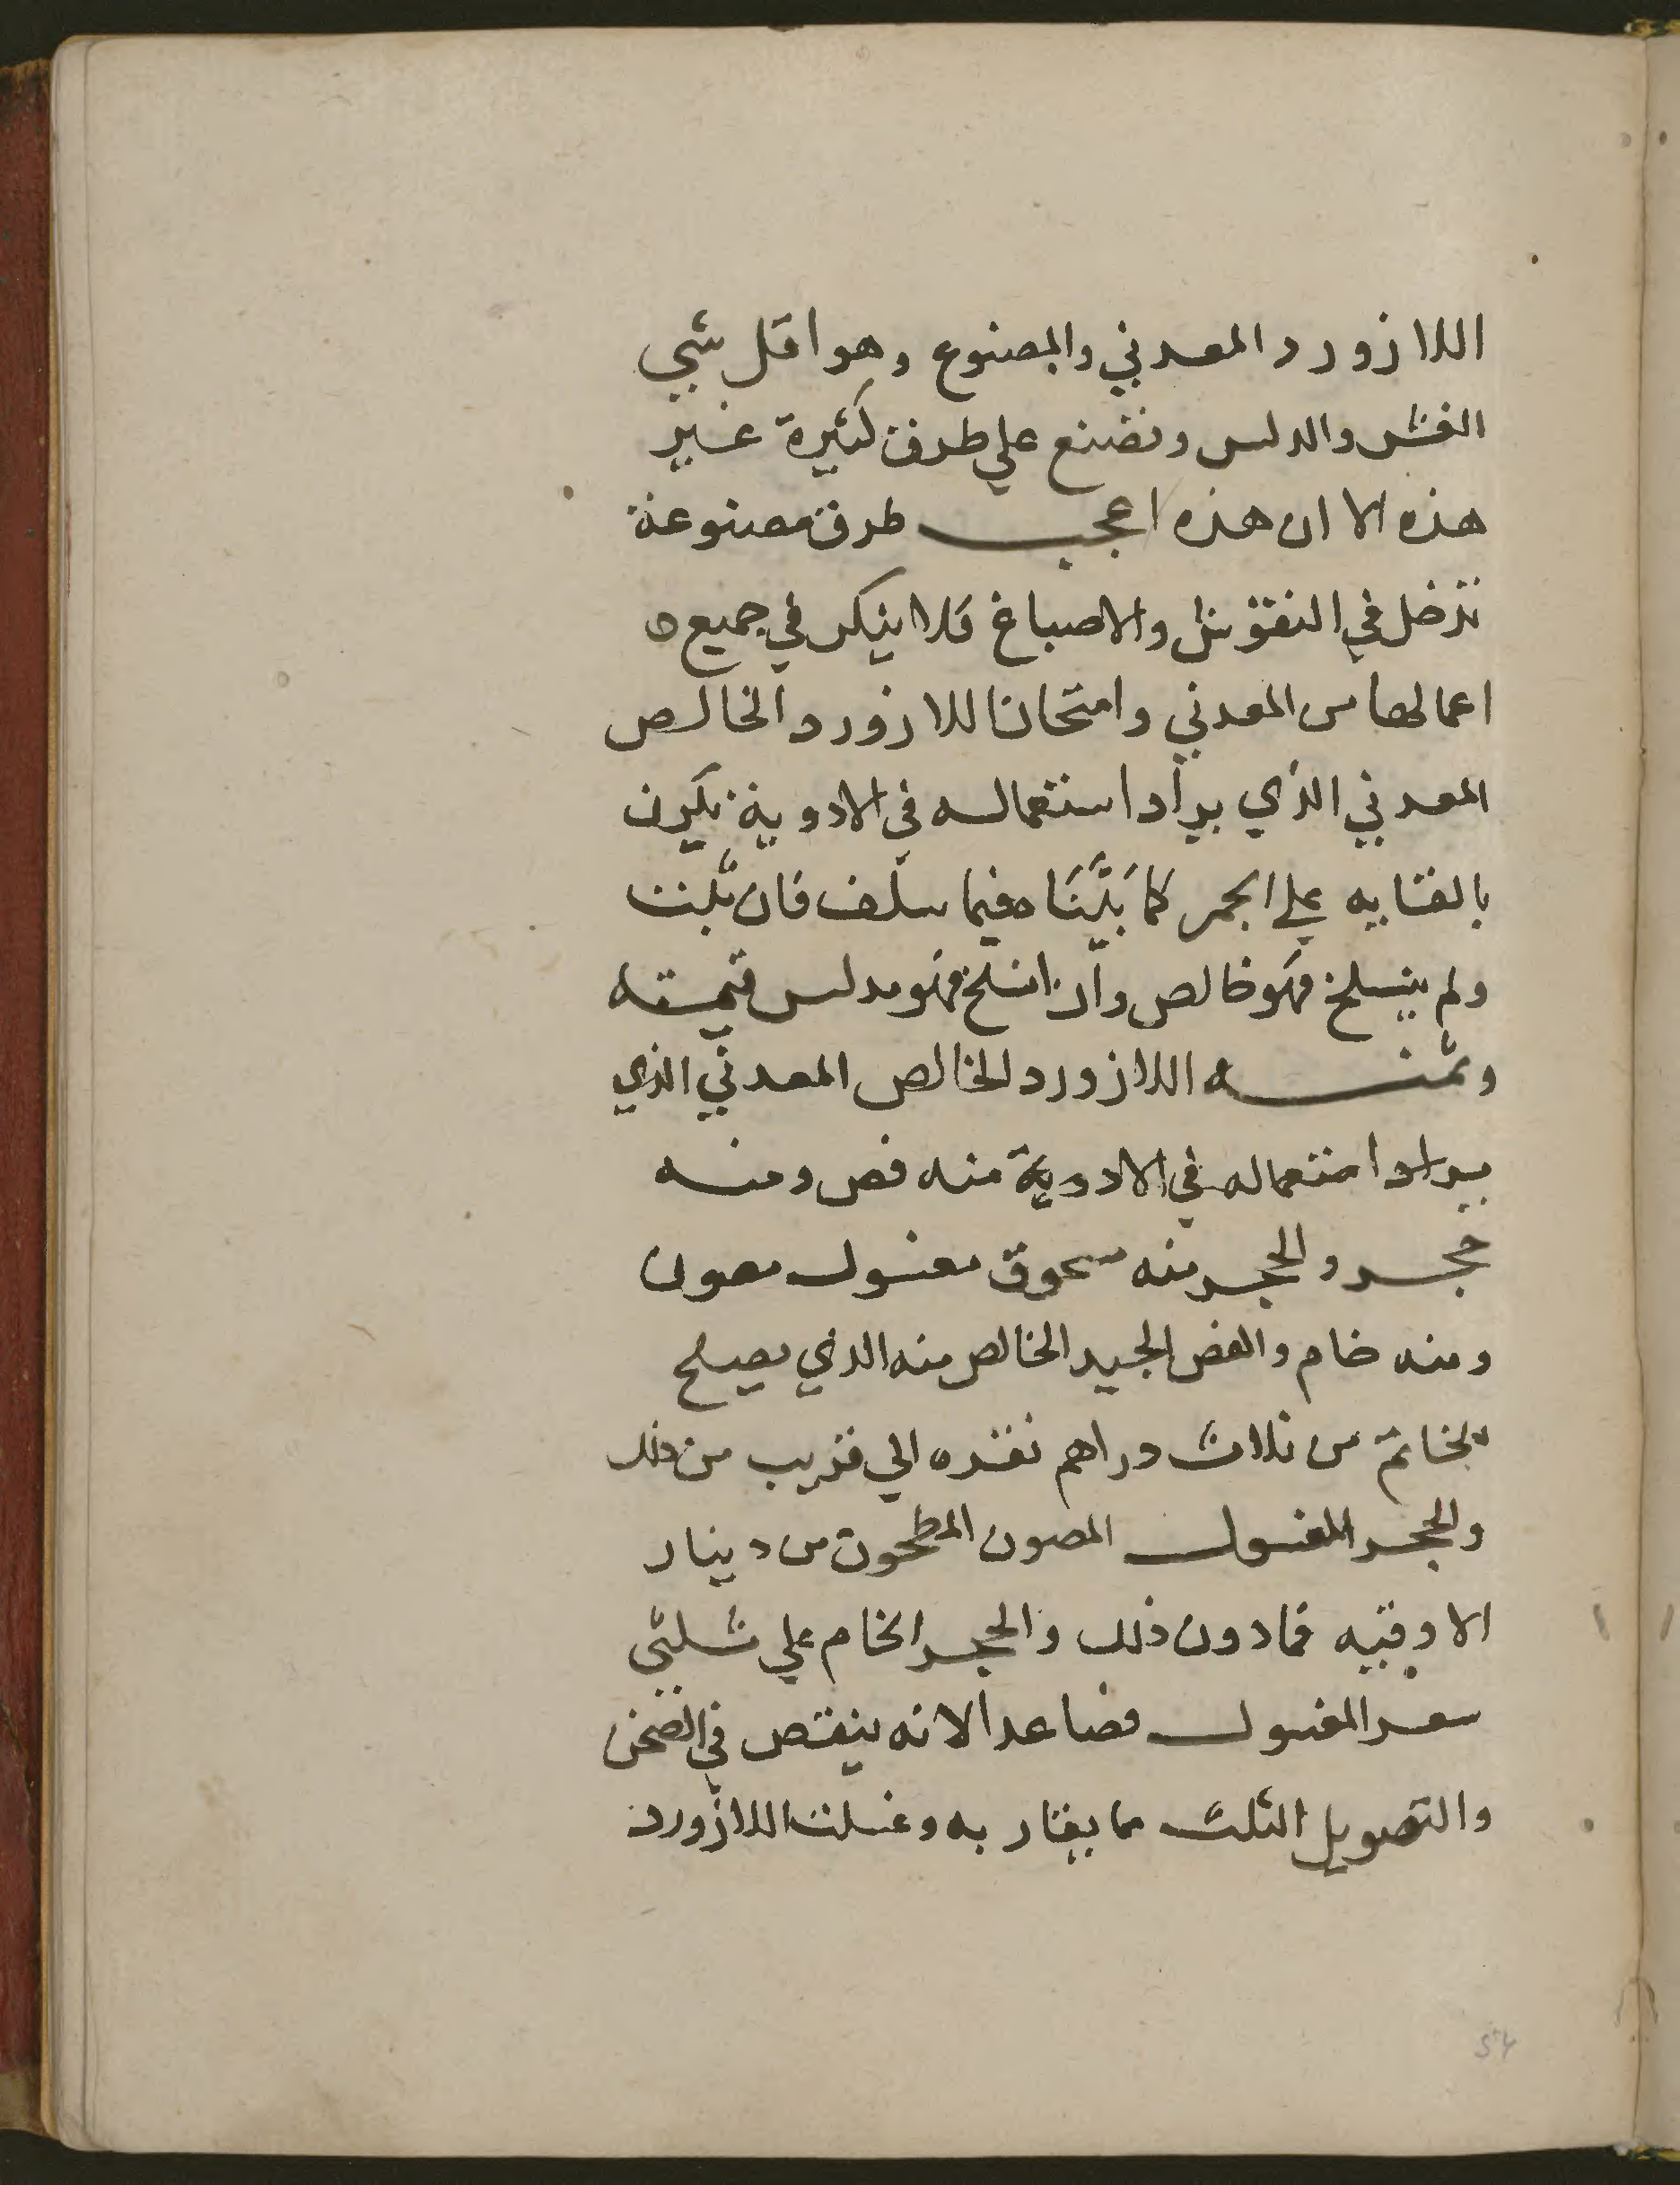 اللازورد المعدني والمصنوع وهو اقل شي
الغش والدلس وتصنع علي طرق كثيرة غير
هذه الا ان هذه اعجب طرق مصنوعة
تدخل في النقوش والاصباغ فلا ينكر في جميع ه
اعمالها من المعدني وامتحان اللازورد الخالص
المعدني الذي يراد استعماله في الادوية يكون
بالقايه علي الجمر كما بَيَّنَاه فيما سلف فان ثبت
ولم ينسلخ فهو خالص وان انسلخ فهو مدلس قيمته
وثمنه اللازورد الخالص المعدني الذي
يراد استعماله في الادوية منه فص ومنه
حجر والحجر منه مسحوق مغسول مصون
ومنه خام والفص الجيد الخالص منه الذي يصلح
لخاتم من ثلاث دراهم نقره الي قريب من ذلك
والحجر المغسول المصون المطحون من دينار
الاوقيه فما دون ذلك والحجر الخام علي ثلثي
سعر المغسول فصاعدا لانه ينقص في الصحن
والتصويل الثلث مما يقاربه وغسلت اللازورد
54